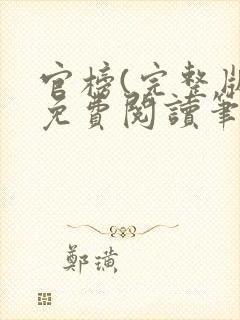 官榜(完整版
免費閱讀筆
鄭璜